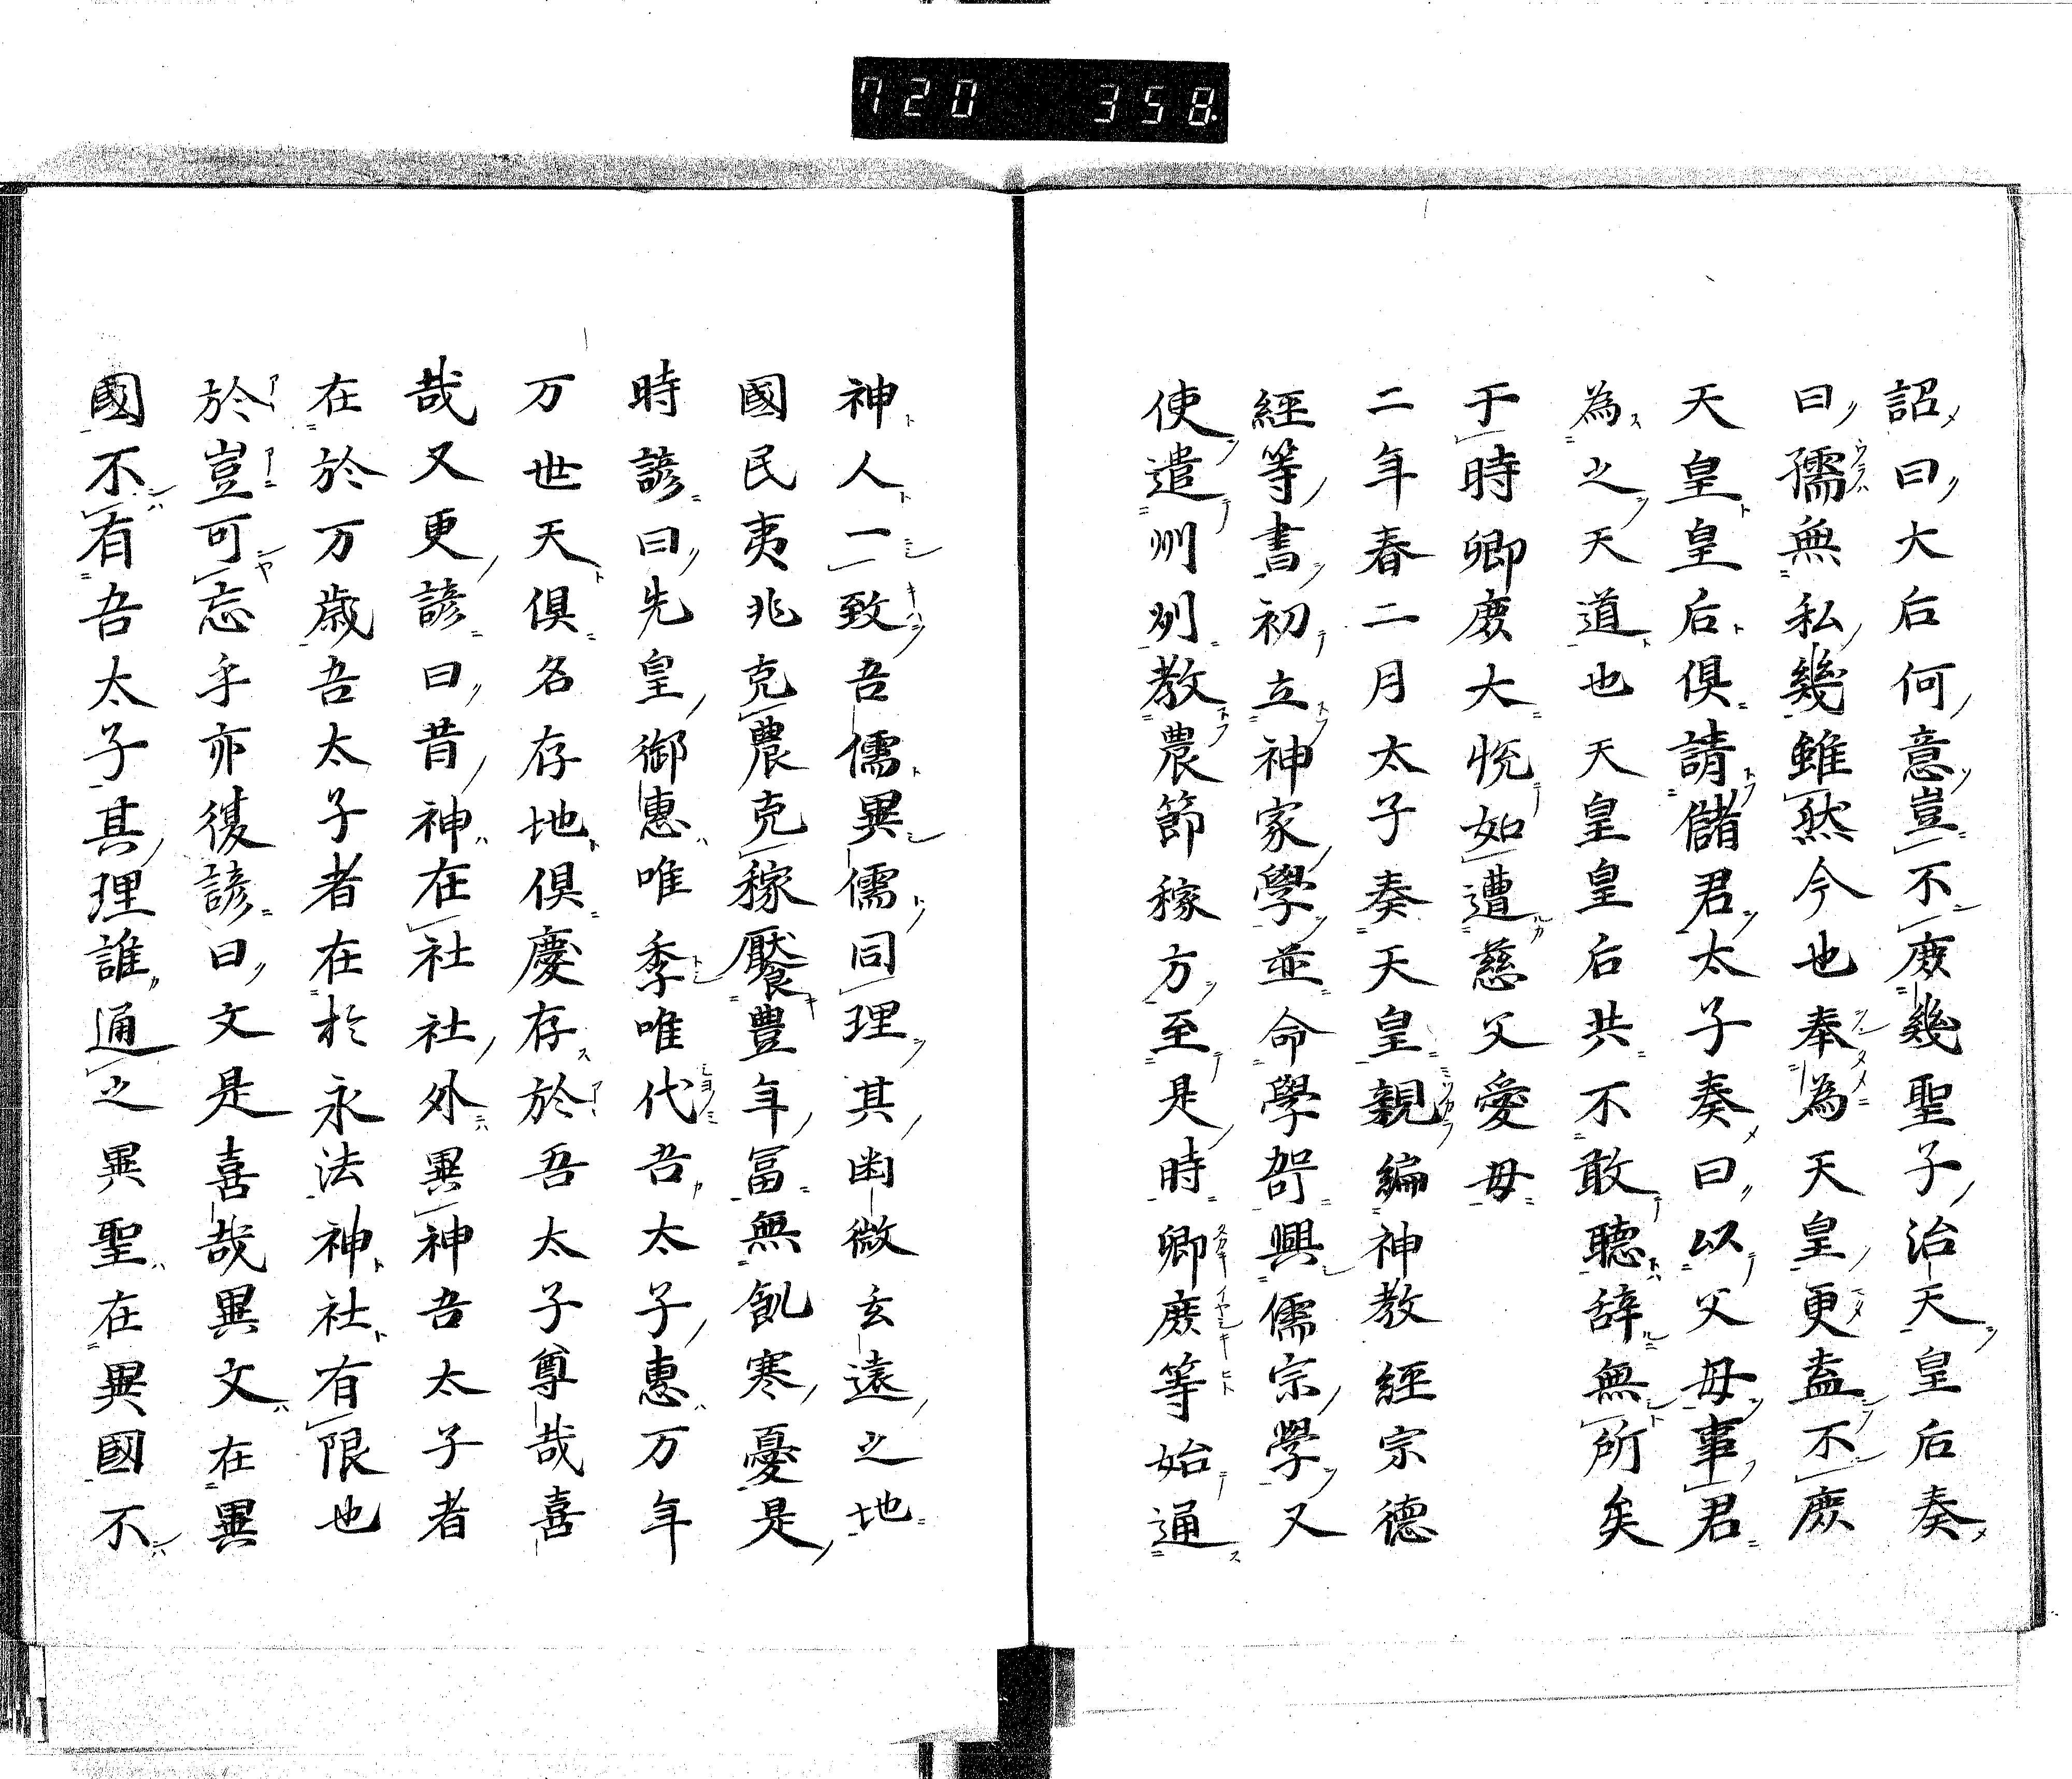 720 358
詔曰大后何意豈不庻幾聖子治天皇后奏
曰孺無私幾雖然今也奉為天皇更盍不庻
天皇皇后俱請儲君太子奏曰以父母事君
為之天道也天皇皇后共不敢聽辞無所矣
于時卿庻大悦如遭慈父愛母
二年春二月太子奏天皇親編神教經宗德
經等書初立神家學並命學哿興儒宗學又
使遣州州教農節稼方至是時卿庻等始通
神人一致吾儒異儒同理其幽微玄遠之地
國民夷兆克農克稼饜豊年冨無飢寒憂是
時諺曰先皇御惠唯季唯代吾太子惠万年
万世天俱名存地俱慶存於吾太子尊哉喜
哉又更諺曰昔神在社社外異神吾太子者
在於万歲吾太子者在於永法神社有限也
於豈可忘乎亦復諺曰文是喜哉異文在異
國不有吾太子其理誰通之異聖在異國不